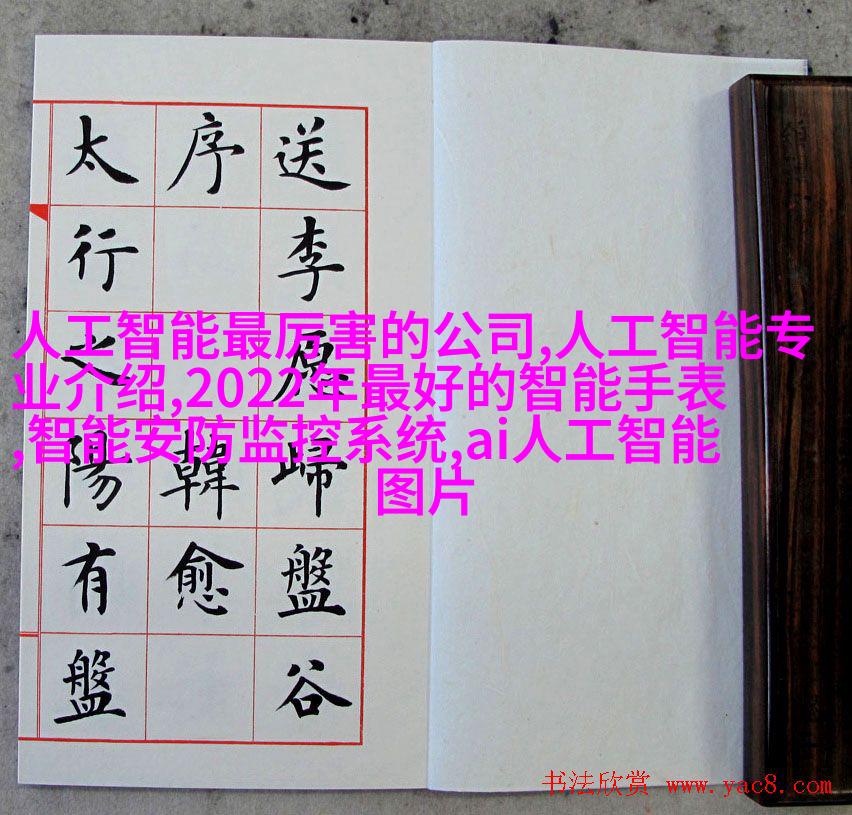 送李愿歸盤谷
序 韓愈
太行之陽有盤
人工智能最厉害的公司,人工智能专
业介绍,2022年最好的智能手表
,智能安防监控系统,ai人工智能
图片
书法欣赏 www.yac8.com